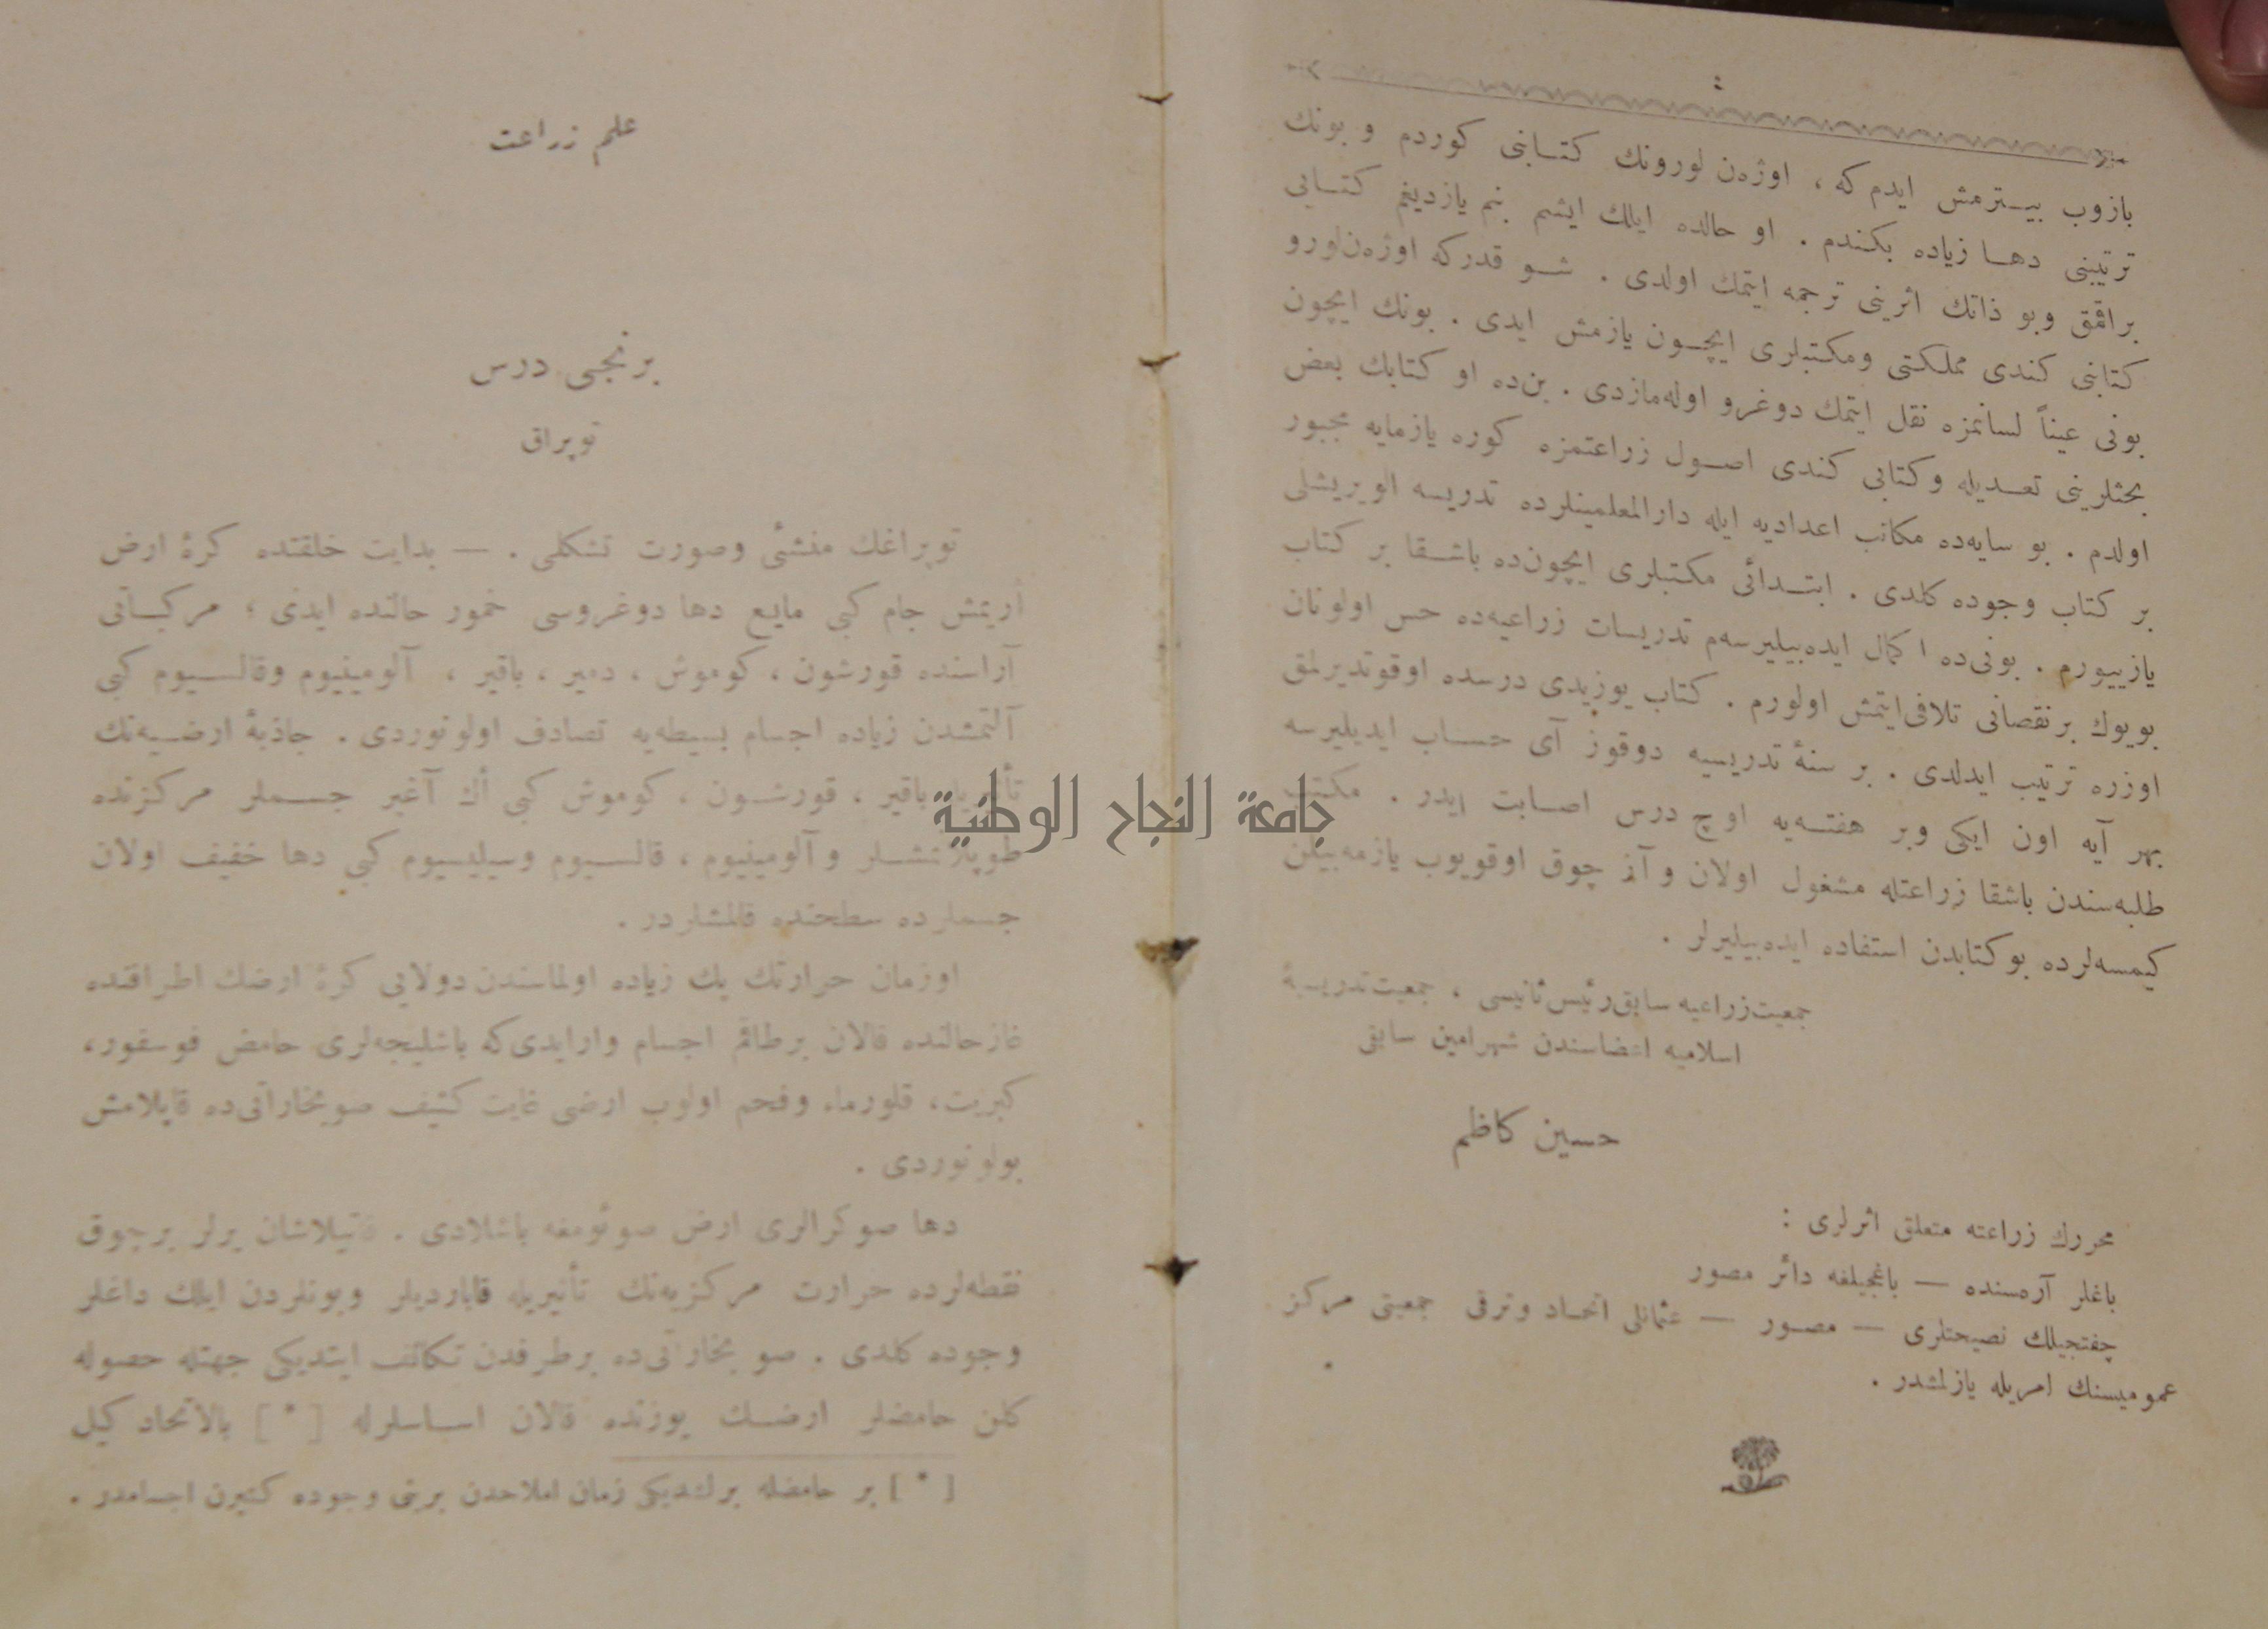 یازوب بیترمش ایدم که ، اوژەن لورونك کتابنی کوردم و بونك
ترتیبنی دها زیاده بکندم . او حالده ایلك ایشم بنم یازدیغم کتابی
براقمق وبو ذاتك اثرینی ترجمه ایتمك اولدی . شو قدرکه اوژەن لورو
کتابنی کندی مملکتی ومکتبلری ایچون یازمش ایدی . بونك ایچون
بونی عیناً لسانمزه نقل ایتمك دوغرو اوله‌مازدی . بن‌ده او کتابك بعض
بحثلرینی تعدیله وکتابی کندی اصول زراعتمزه کوره یازمایه مجبور
اولدم . بو سایه‌ده مکاتب اعدادیه ایله دارالمعلمینلرده تدریسه الویریشلی
بر کتاب وجوده کلدی . ابتدائی مکتبلری ایچون‌ده باشقا بر کتاب
یازییورم . بونی‌ده اکمال ایده‌بیلیرسه‌م تدریسات زراعیه‌ده حس اولونان
بویوك برنقصانی تلافی ایتمش اولورم . کتاب یوزیدی درسده اوقوتدیرلمق
اوزره ترتیب ایدلدی . بر سنۀ تدریسیه دوقوز آی حساب ایدیلیرسه
بهر آیه اون ایکی وبر هفته‌یه اوچ درس اصابت ایدر . مکتب
طلبه‌سندن باشقا زراعتله مشغول اولان و آز چوق اوقویوب یازمه‌بیلن
کیمسه‌لرده بوکتابدن استفاده ایده‌بیلیرلر .
جمعیت زراعیه سابق رئیس ثانیسی ، جمعیت تدریسیۀ
اسلامیه اعضاسندن شهرامین سابقی
حسین کاظم
محررك زراعته متعلق اثرلری :
باغلر آره‌سنده — باغجیلغه دائر مصور
چفتجیلك نصیحتلری — مصور — عثمانلی اتحاد وترقی جمعیتی مرکز
عمومیسنك امریله یازلمشدر .
علم زراعت
برنجی درس
توپراق
توپراغك منشئی وصورت تشکلی . — بدایت خلقتده کرۀ ارض
أریمش جام کبی مایع دها دوغروسی خمور حالنده ایدی ؛ مرکباتی
آراسنده قورشون ، کوموش ، دمیر ، باقیر ، آلومینیوم وقالسیوم کبی
آلتمشدن زیاده اجسام بسیطه‌یه تصادف اولونوردی . جاذبۀ ارضیه‌نك
تأثیریله باقیر ، قورشون ، کوموش کبی أك آغیر جسملر مرکزنده
طوپلانمشلر و آلومینیوم ، قالسیوم وسیلیسیوم کبی دها خفیف اولان
جسملرده سطحنده قالمشلردر .
اوزمان حرارتك پك زیاده اولماسندن دولایی کرۀ ارضك اطرافنده
غاز حالنده قالان برطاقم اجسام وارایدی‌که باشلیجه‌لری حامض فوسفور،
کبریت ، قلورماء وفحم اولوب ارضی غایت کثیف صوبخاراتی‌ده قاپلامش
بولونوردی .
دها صوکرالری ارض صوئومغه باشلادی . قاتیلاشان یرلر برچوق
نقطه‌لرده حرارت مرکزیه‌نك تأثیریله قاباردیلر وبونلردن ایلك داغلر
وجوده کلدی . صو بخاراتی‌ده برطرفدن تکاثف ایتدیکی جهتله حصوله
کلن حامضلر ارضك یوزنده قالان اساسلرله [ * ] بالاتحاد کیل
[ * ] بر حامضله برلشدیکی زمان املاحدن برینی وجوده کتیرن اجسامدر .
جامعة النجاح الوطنية